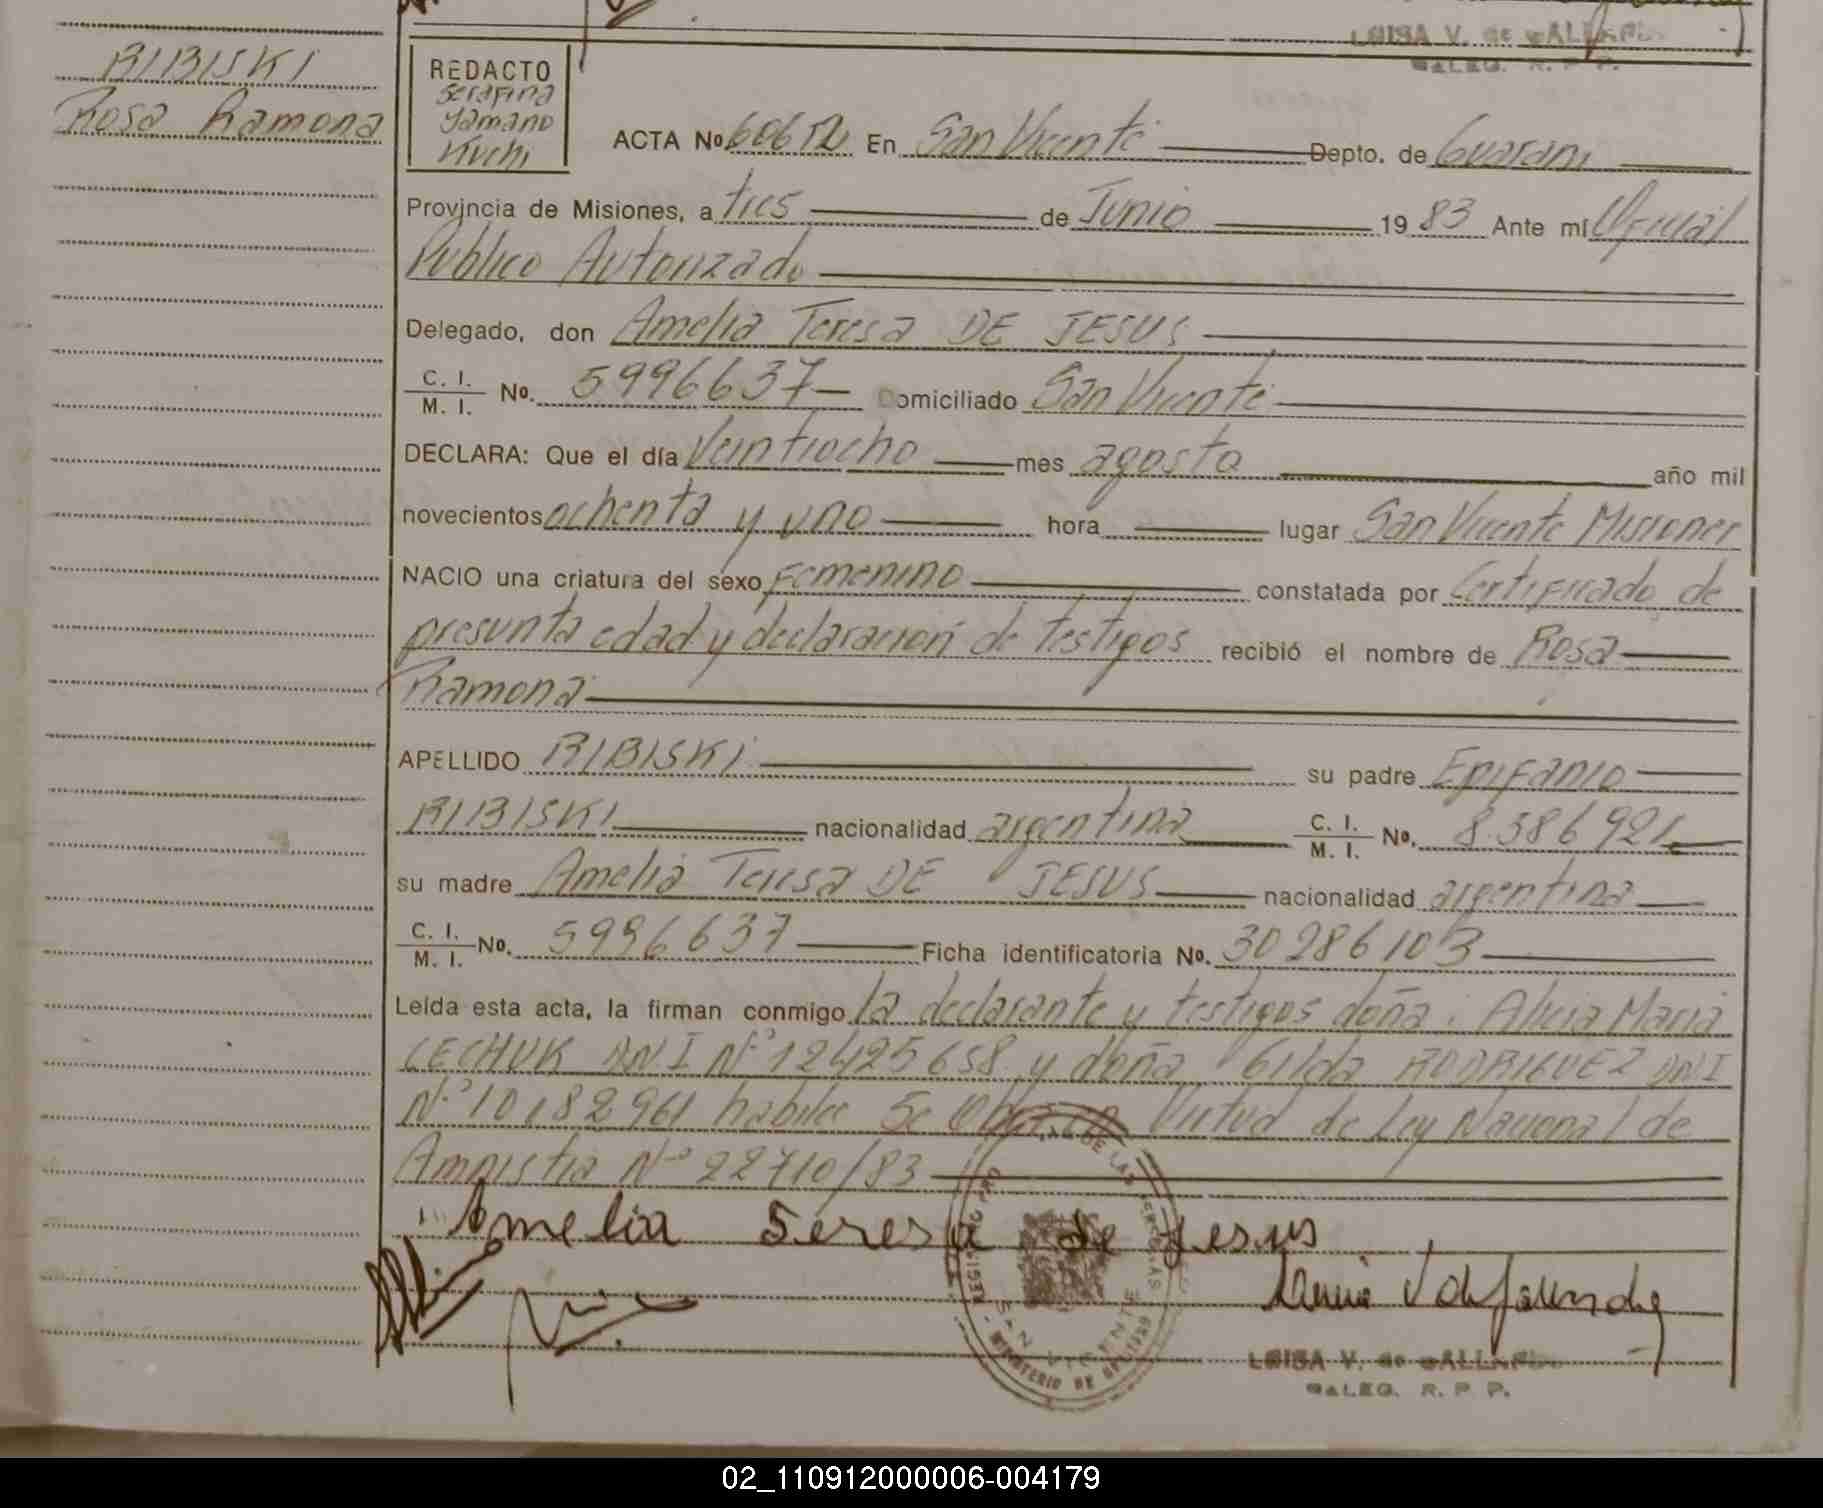 LUISA V. de GALLARDO
DELEG. R. P. P.
RIBISKI
Rosa Ramona
REDACTO
Serafina
Yamano
Kuchi
ACTA No 606 En San Vicente Depto. de Guarani
Provincia de Misiones, a tres de Junio 1983 Ante mí Oficial
Publico Autorizado
Delegado, don Amelia Teresa DE JESUS
C. I. / M. I. No. 5996637 Domiciliado San Vicente
DECLARA: Que el día Veintiocho mes agosto año mil
novecientos ochenta y uno hora lugar San Vicente Misiones
NACIO una criatura del sexo Femenino constatada por Certificado de
presunta edad y declaracion de testigos recibió el nombre de Rosa
Ramona
APELLIDO RIBISKI su padre Epifanio
RIBISKI nacionalidad argentina C. I. / M. I. No. 8.586921
su madre Amelia Teresa DE JESUS nacionalidad argentina
C. I. / M. I. No. 5996637 Ficha identificatoria No. 30286103
Leída esta acta, la firman conmigo la declarante y testigos doña: Alicia Maria
LECHUK DNI Nº 12425658 y doña Gilda RODRIGUEZ DNI
Nº 10182961 habiles Se en Virtud de Ley Nacional de
Amnistia Nº 22710/83
Amelia Teresa de Jesus
REGISTRO PRO DE LAS PERSONAS
SAN VICENTE
MINISTERIO DE GOBIERNO
LUISA V. de GALLARDO
DELEG. R. P. P.
02_110912000006-004179